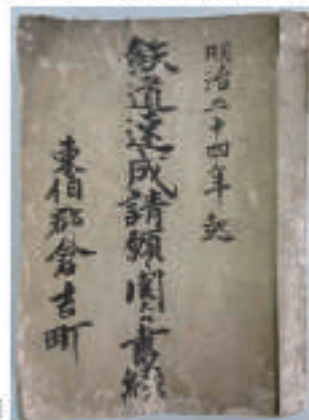 明治二十四年起
鉄道速成請願関スル書
東伯郡倉吉町